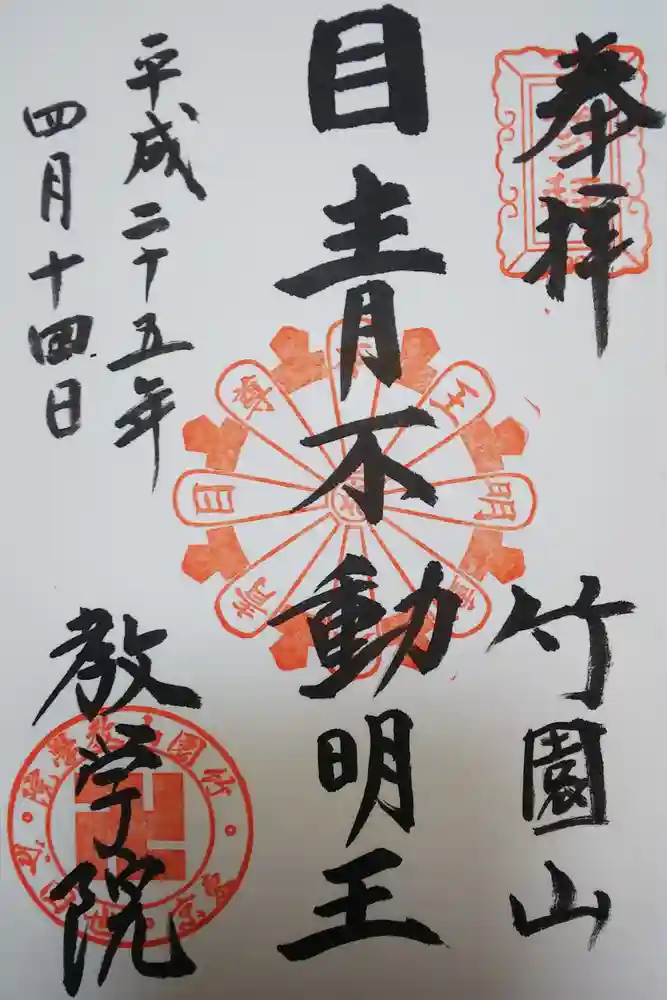 奉拝
竹園山
目青不動明王
平成二十五年
四月十四日
教学院